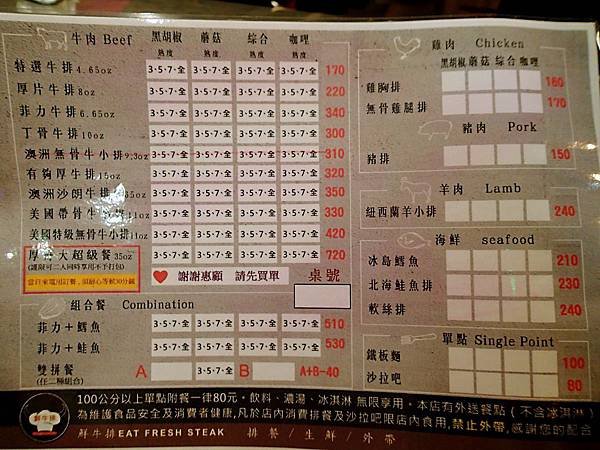 牛肉 Beef 黑胡椒 蘑菇 綜合 咖哩
熟度 熟度 熟度 熟度
特選牛排 4.65oz 3·5·7·全 3·5·7·全 3·5·7·全 3·5·7·全 170
厚片牛排 8oz 3·5·7·全 3·5·7·全 3·5·7·全 3·5·7·全 220
菲力牛排 6.65oz 3·5·7·全 3·5·7·全 3·5·7·全 3·5·7·全 340
丁骨牛排 10oz 3·5·7·全 3·5·7·全 3·5·7·全 3·5·7·全 300
澳洲無骨牛小排 9.3oz 3·5·7·全 3·5·7·全 3·5·7·全 3·5·7·全 310
有夠厚牛排 15oz 3·5·7·全 3·5·7·全 3·5·7·全 3·5·7·全 320
澳洲沙朗牛排 3·5·7·全 3·5·7·全 3·5·7·全 3·5·7·全 350
美國帶骨牛 11oz 3·5·7·全 3·5·7·全 3·5·7·全 3·5·7·全 330
美國特級無骨牛小排 11oz 3·5·7·全 3·5·7·全 3·5·7·全 3·5·7·全 420
厚 大超級餐 35oz 3·5·7·全 3·5·7·全 3·5·7·全 3·5·7·全 720
(謹限可二人同時享用不予打包)
當日來電預訂餐，須耐心等候30分鐘
謝謝惠顧 請先買單 桌號
組合餐 Combination
菲力+鱈魚 3·5·7·全 3·5·7·全 3·5·7·全 3·5·7·全 510
菲力+鮭魚 3·5·7·全 3·5·7·全 3·5·7·全 3·5·7·全 530
雙拼餐 A 3·5·7·全 B 3·5·7·全 A+B-40
(任二種組合)
雞肉 Chicken
黑胡椒 蘑菇 綜合 咖哩
雞胸排 160
無骨雞腿排 170
豬肉 Pork
豬排 150
羊肉 Lamb
紐西蘭羊小排 240
海鮮 seafood
冰島鱈魚 210
北海鮭魚排 230
軟絲排 240
單點 Single Point
鐵板麵 100
沙拉吧 80
100公分以上單點附餐一律80元。飲料、濃湯、冰淇淋 無限享用。本店有外送餐點(不含冰淇淋)
為維護食品安全及消費者健康,凡於店內消費排餐及沙拉吧限店內食用,禁止外帶,感謝您的配合
鮮牛排
鮮牛排EAT FRESH STEAK 排餐 / 生鮮 / 外帶